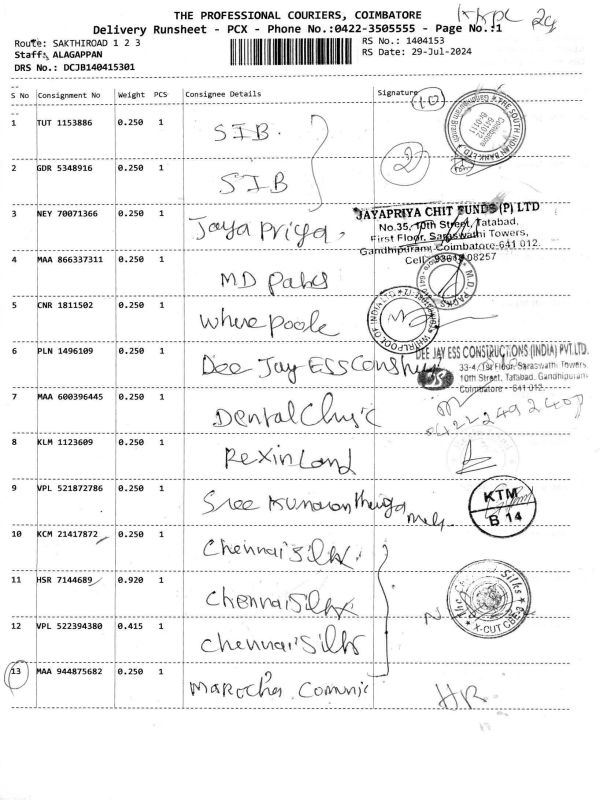 THE PROFESSIONAL COURIERS, COIMBATORE
Delivery Runsheet - PCX - Phone No.:0422-3505555 - Page No.:1
Route: SAKTHIROAD 1 2 3
RS No.: 1404153
Staff: ALAGAPPAN
RS Date: 29-Jul-2024
DRS No.: DCJB140415301
S No Consignment No Weight PCS Consignee Details Signature
10
1 TUT 1153886 0.250 1 SIB.
2 GDR 5348916 0.250 1 SIB
2
3 NEY 70071366 0.250 1 Jaya Priya,
JAYAPRIYA CHIT FUNDS (P) LTD
No.35, 10th Street, Tatabad,
First Floor, Saraswathi Towers,
Gandhipuram, Coimbatore-641 012.
4 MAA 866337311 0.250 1 MD Paks
M.D. PACKS
5 CNR 1811502 0.250 1 Whirepoole
WHIRLPOOL OF INDIA LTD
6 PLN 1496109 0.250 1 Dee Jay ESS
DEE JAY ESS CONSTRUCTIONS (INDIA) PVT.LTD.
33-4, 1st Floor, Saraswathi Towers,
10th Street, Tatabad, Gandhipuram
Coimbatore - 641 012.
7 MAA 600396445 0.250 1 Dental Clinic
8 KLM 1123609 0.250 1 Rexin Land
9 VPL 521872786 0.250 1 Sree
KTM
B 14
10 KCM 21417872 0.250 1 Chennai Silk
11 HSR 7144689 0.920 1 Chennai Silk
12 VPL 522394380 0.415 1 Chennai Silk
X-CUT CBE-9
13 MAA 944875682 0.250 1
HR